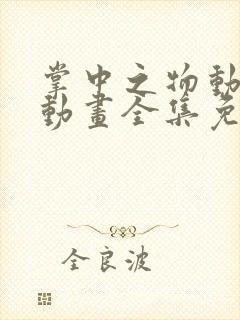 掌中之物動
動畫全集免
全良波